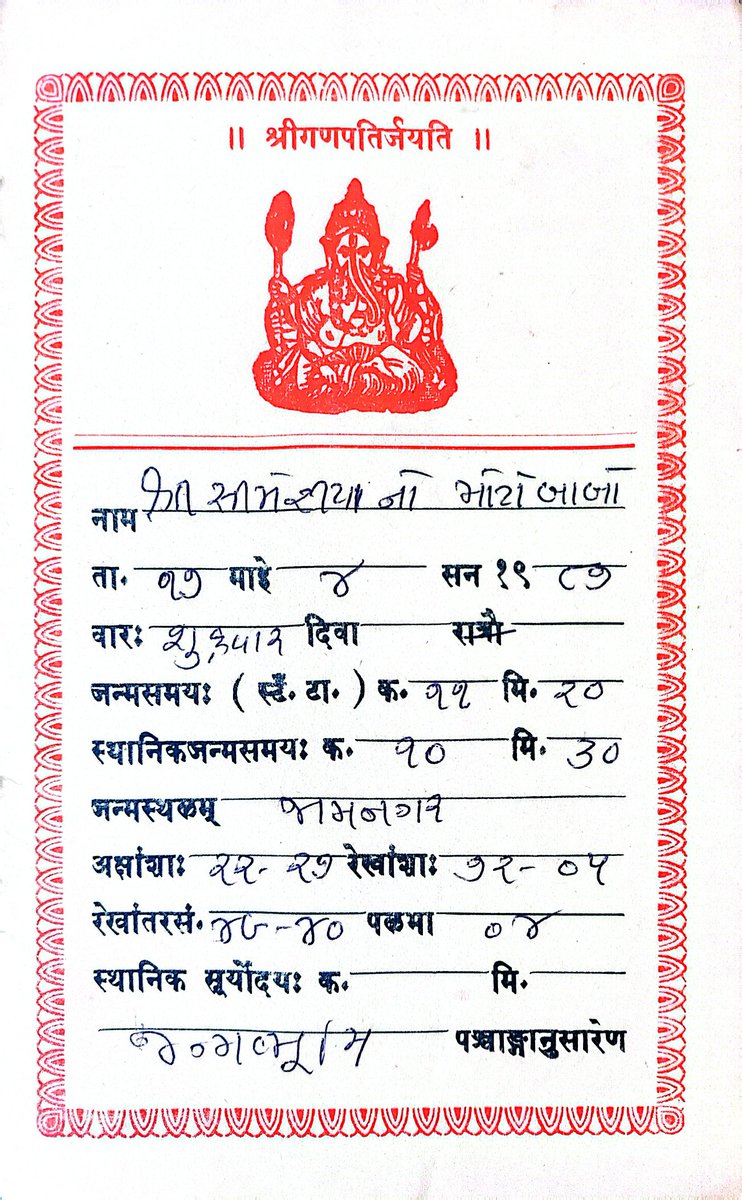 ॥ श्रीगणपतिर्जयति ॥
नाम શ્રી સોમેશ્વીયા નો મોટો બાબો
ता. ૧૭ माहे ૪ सन १९ ૮૭
वारः શુક્રવાર दिवा रात्रौ
जन्मसमयः ( स्टँ. टा. ) क. ૧૧ मि. ૨૦
स्थानिकजन्मसमयः क. ૧૦ मि. ૩૦
जन्मस्थळम् જામનગર
अक्षांशाः ૨૨-૨૭ रेखांशाः ૭૨-૦૫
रेखांतरसं. ૪૮-૪૦ पळभा ૦૪
स्थानिक सूर्योदयः क. मि.
જન્મભૂમિ पञ्चाङ्गानुसारेण